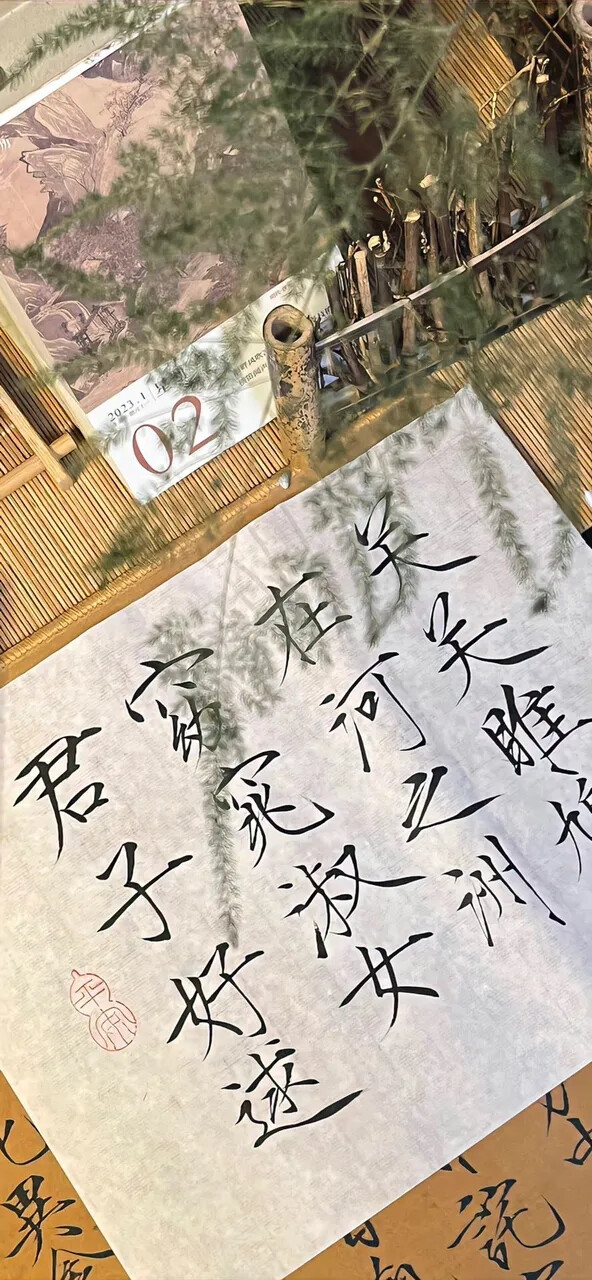 关关雎
在河之洲
窈窕淑女
君子好逑
平安
2023.1
02